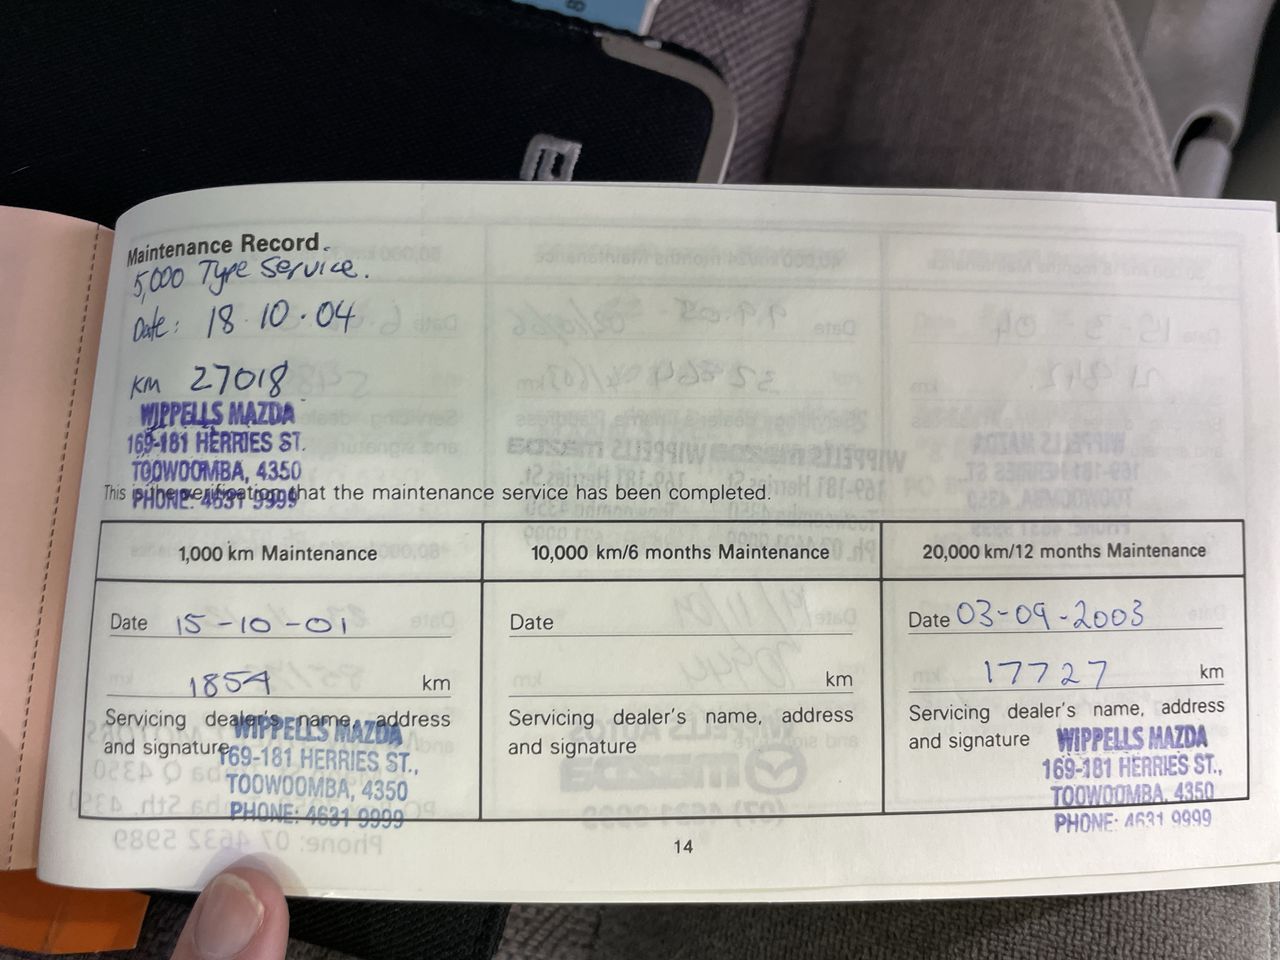 Maintenance Record.
5,000 Type Service.
Date: 18.10.04
KM 27018
WIPPELLS MAZDA
169-181 HERRIES ST.
TOOWOOMBA, 4350
PHONE: 4631 9999
This is the verification that the maintenance service has been completed.
1,000 km Maintenance
10,000 km/6 months Maintenance
20,000 km/12 months Maintenance
Date 15-10-01
Date
Date 03-09-2003
1854 km
km
17727 km
Servicing dealer's name, address
and signature
Servicing dealer's name, address
and signature
Servicing dealer's name, address
and signature
WIPPELLS MAZDA
169-181 HERRIES ST.,
TOOWOOMBA, 4350
PHONE: 4631 9999
WIPPELLS MAZDA
169-181 HERRIES ST.,
TOOWOOMBA, 4350
PHONE: 4631 9999
14